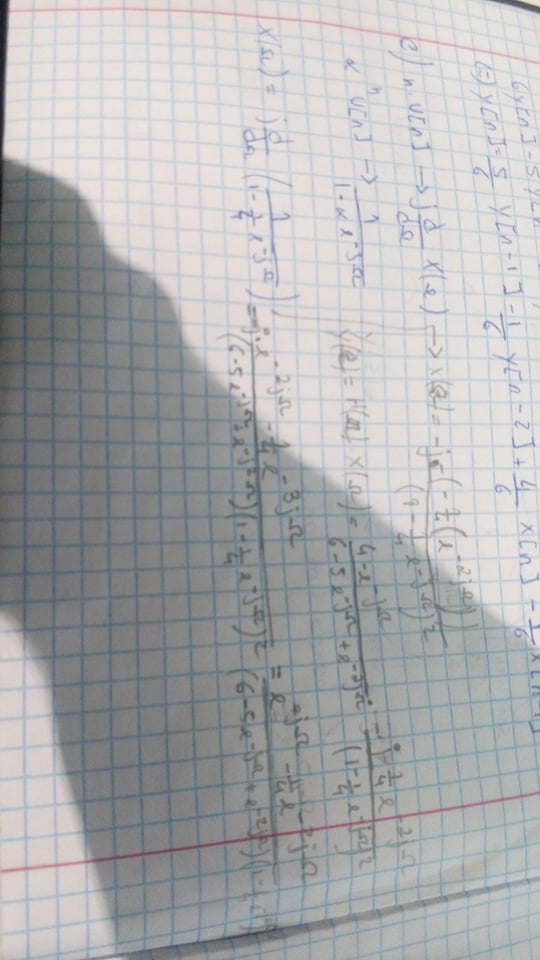 6y[n]-5y[n
(=) y[n]= 5/6 y[n-1] - 1/6 y[n-2] + 4/6 x[n] - 1/6 x[n-1]
c) n·u[n] → j d/dΩ X(Ω) → X(Ω) = -j (-1/4(e^-2jΩ))/(1-1/4 e^-jΩ)^2
α^n u[n] → 1/(1-αe^-jΩ) Y(Ω) = H(Ω) X(Ω) = (4-e^-jΩ)/(6-5e^-jΩ+e^-2jΩ) · (j 1/4 e^-2jΩ)/(1-1/4 e^-jΩ)^2
X(Ω) = j d/dΩ (1/(1-1/4 e^-jΩ)) = j (e^-2jΩ - 1/4 e^-3jΩ)/((6-5e^-jΩ+e^-j2Ω)(1-1/4 e^-jΩ)^2) = (e^jΩ - 1/4 e^-2jΩ)/((6-5e^-jΩ+e^-2jΩ)(1-1/4